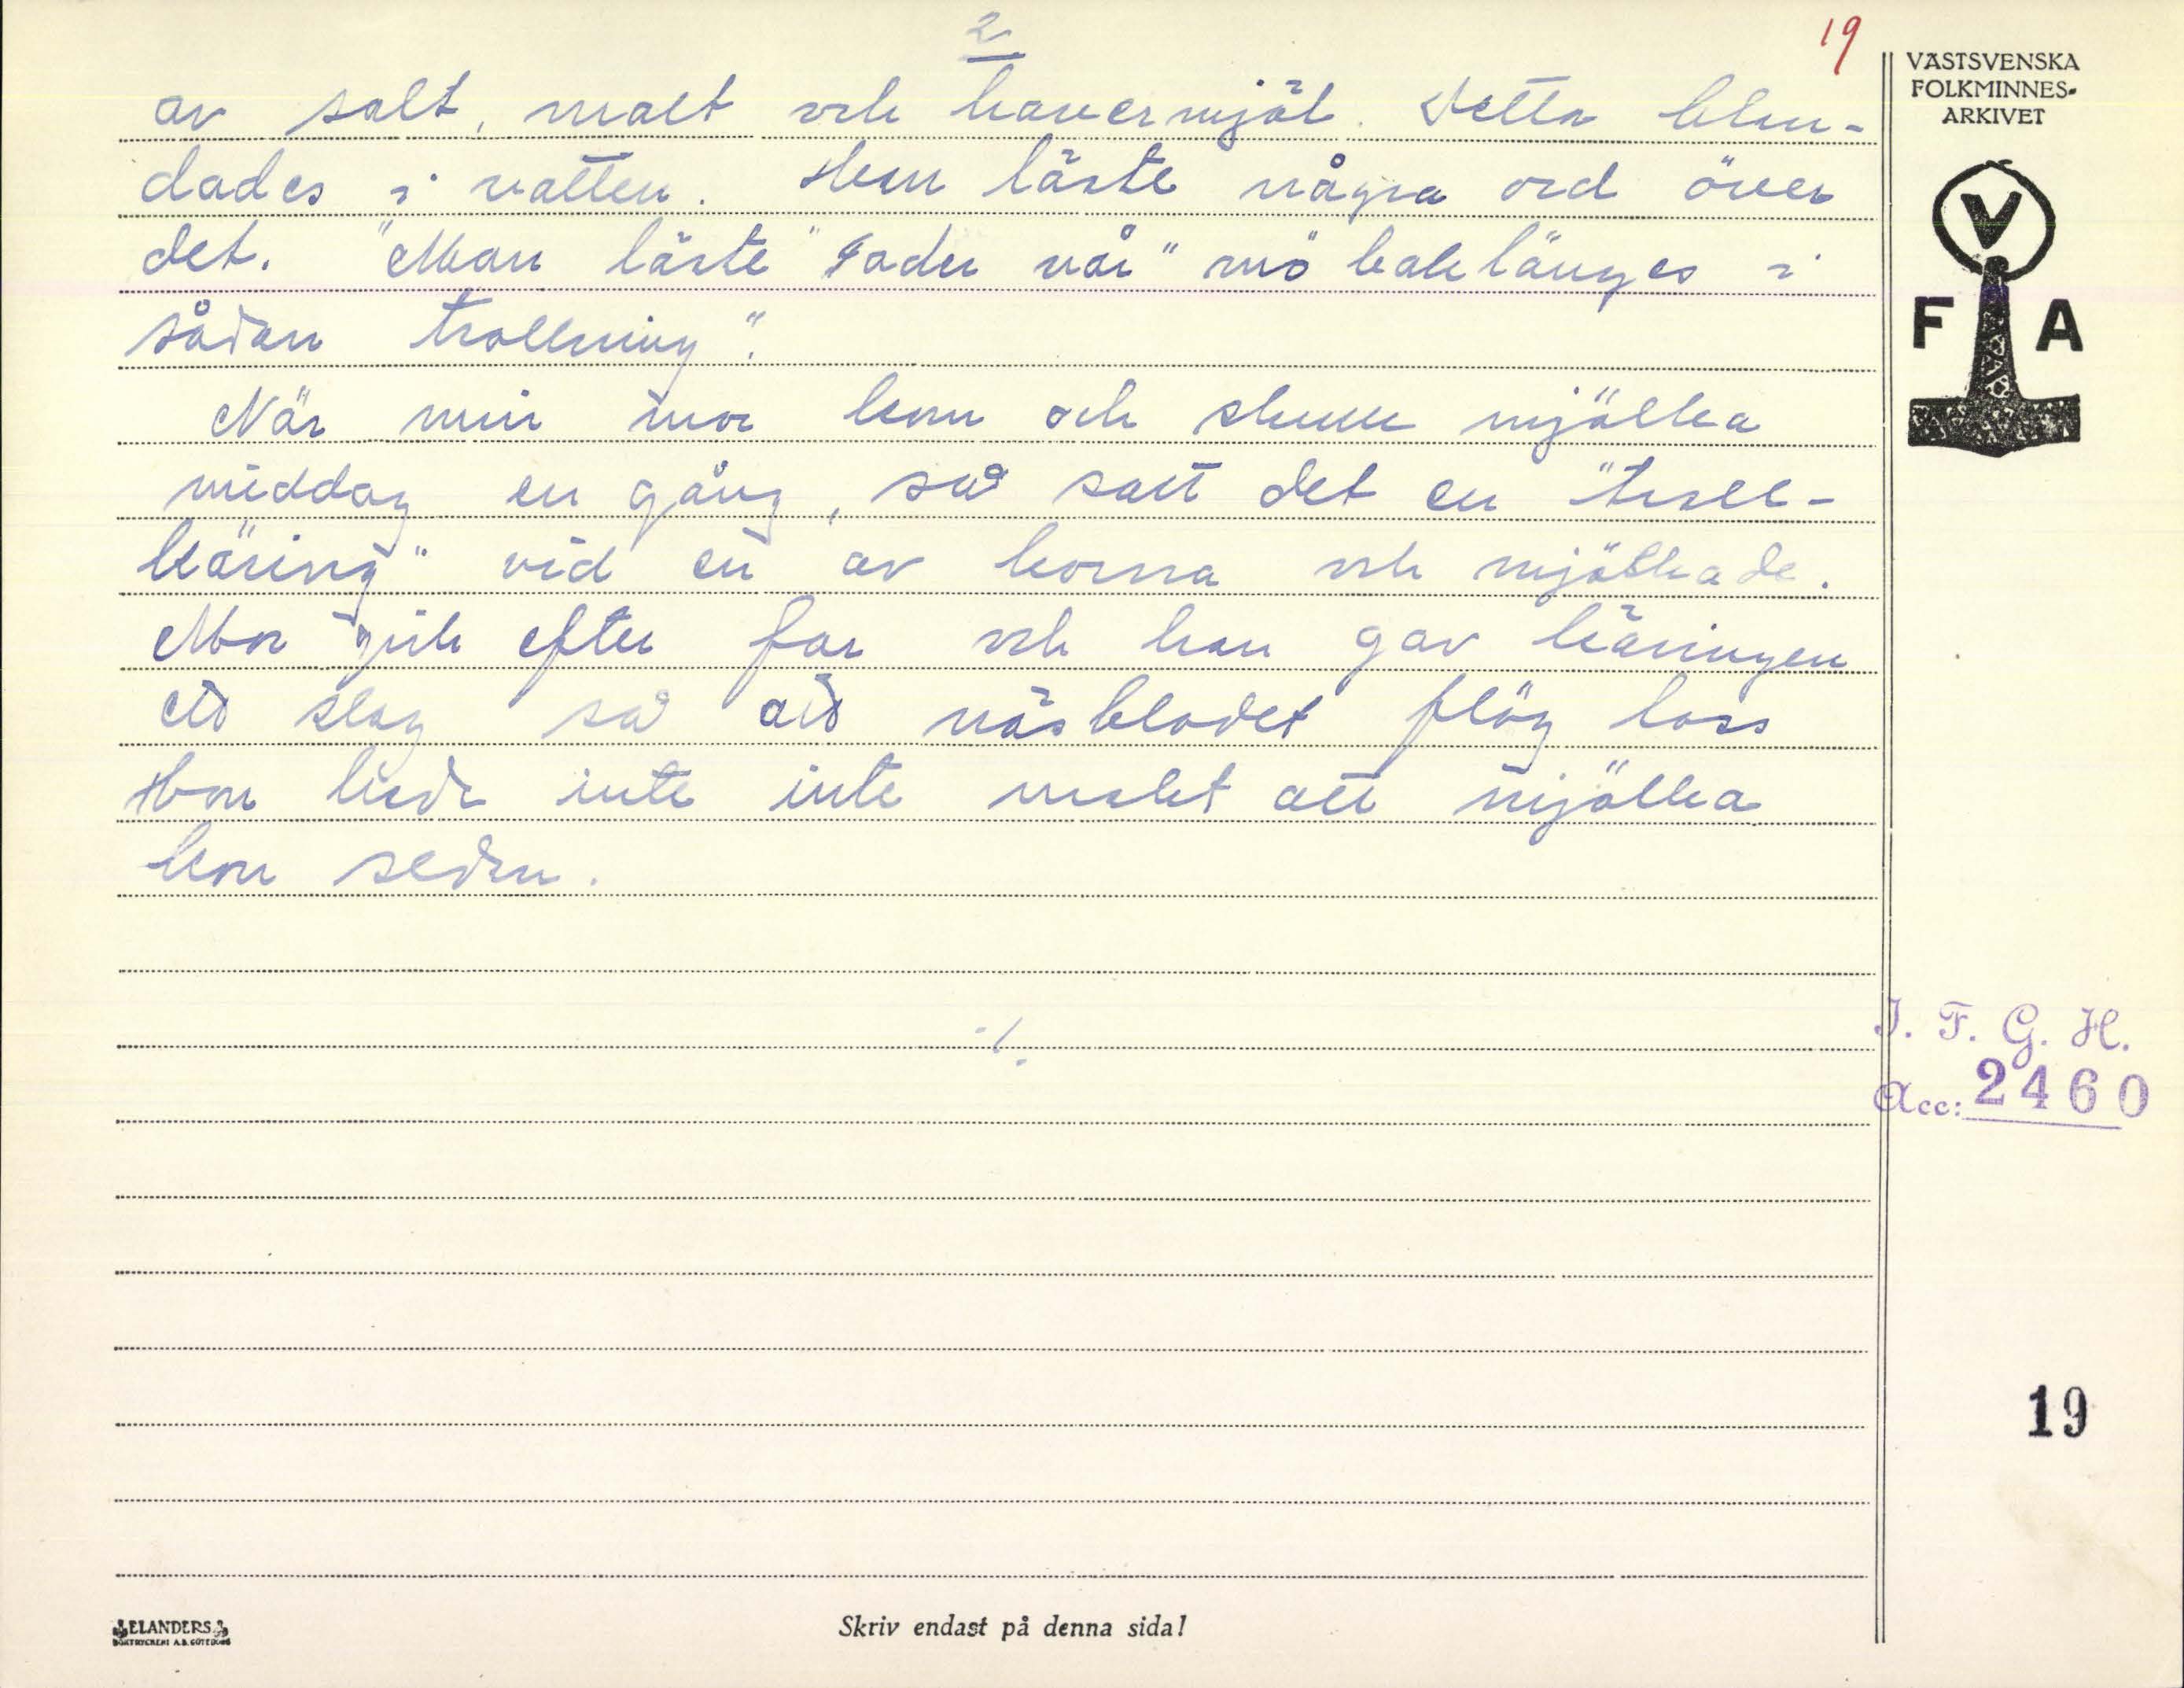 2
19
av salt, malt och havermjöl. Detta blan-
dades i vatten. Hon läste några ord över
det. "Man läste "Fader vår" mö baklänges i
sådan trollning".
När min mor kom och skulle mjölka
middag en gång, så satt det en "troll-
käring" vid en av korna och mjölkade.
Mor gick efter far och han gav käringen
ett slag så att näsblodet flög loss
Hon hade inte inte makt att mjölka
kon sedan.
./.
VÄSTSVENSKA
FOLKMINNES-
ARKIVET
V
F A
I. F. G. H.
Acc: 2460
19
ELANDERS
BOKTRYCKERI A.B. GÖTEBORG
Skriv endast på denna sida!